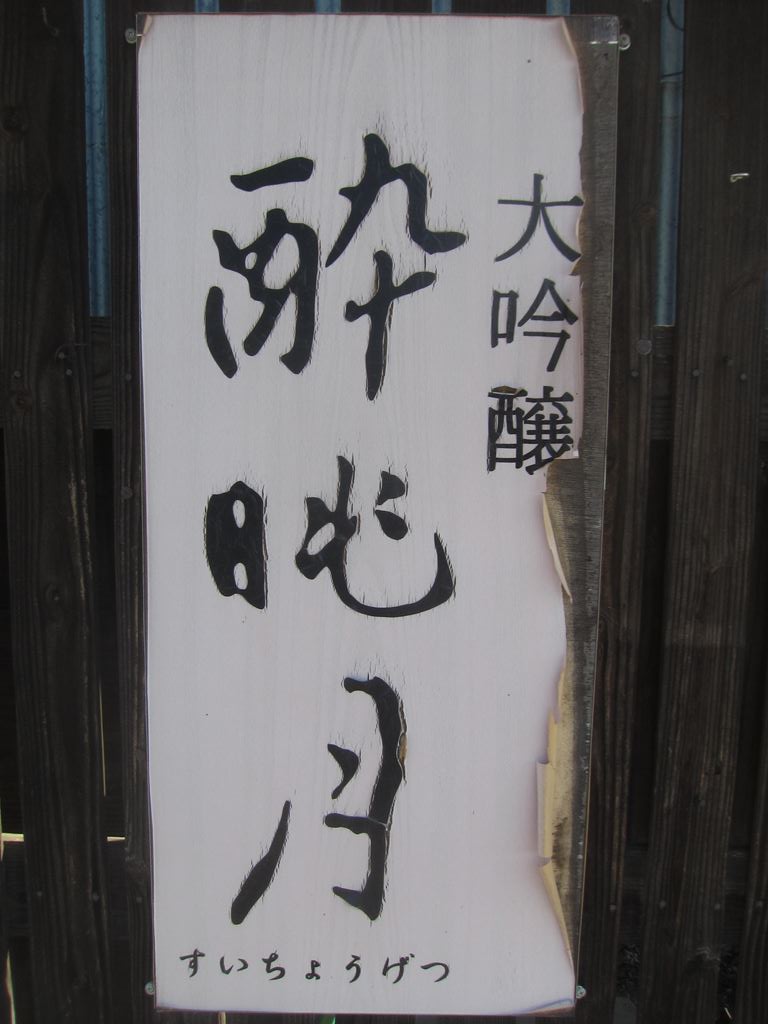 大吟醸
酔眺月
すいちょうげつ